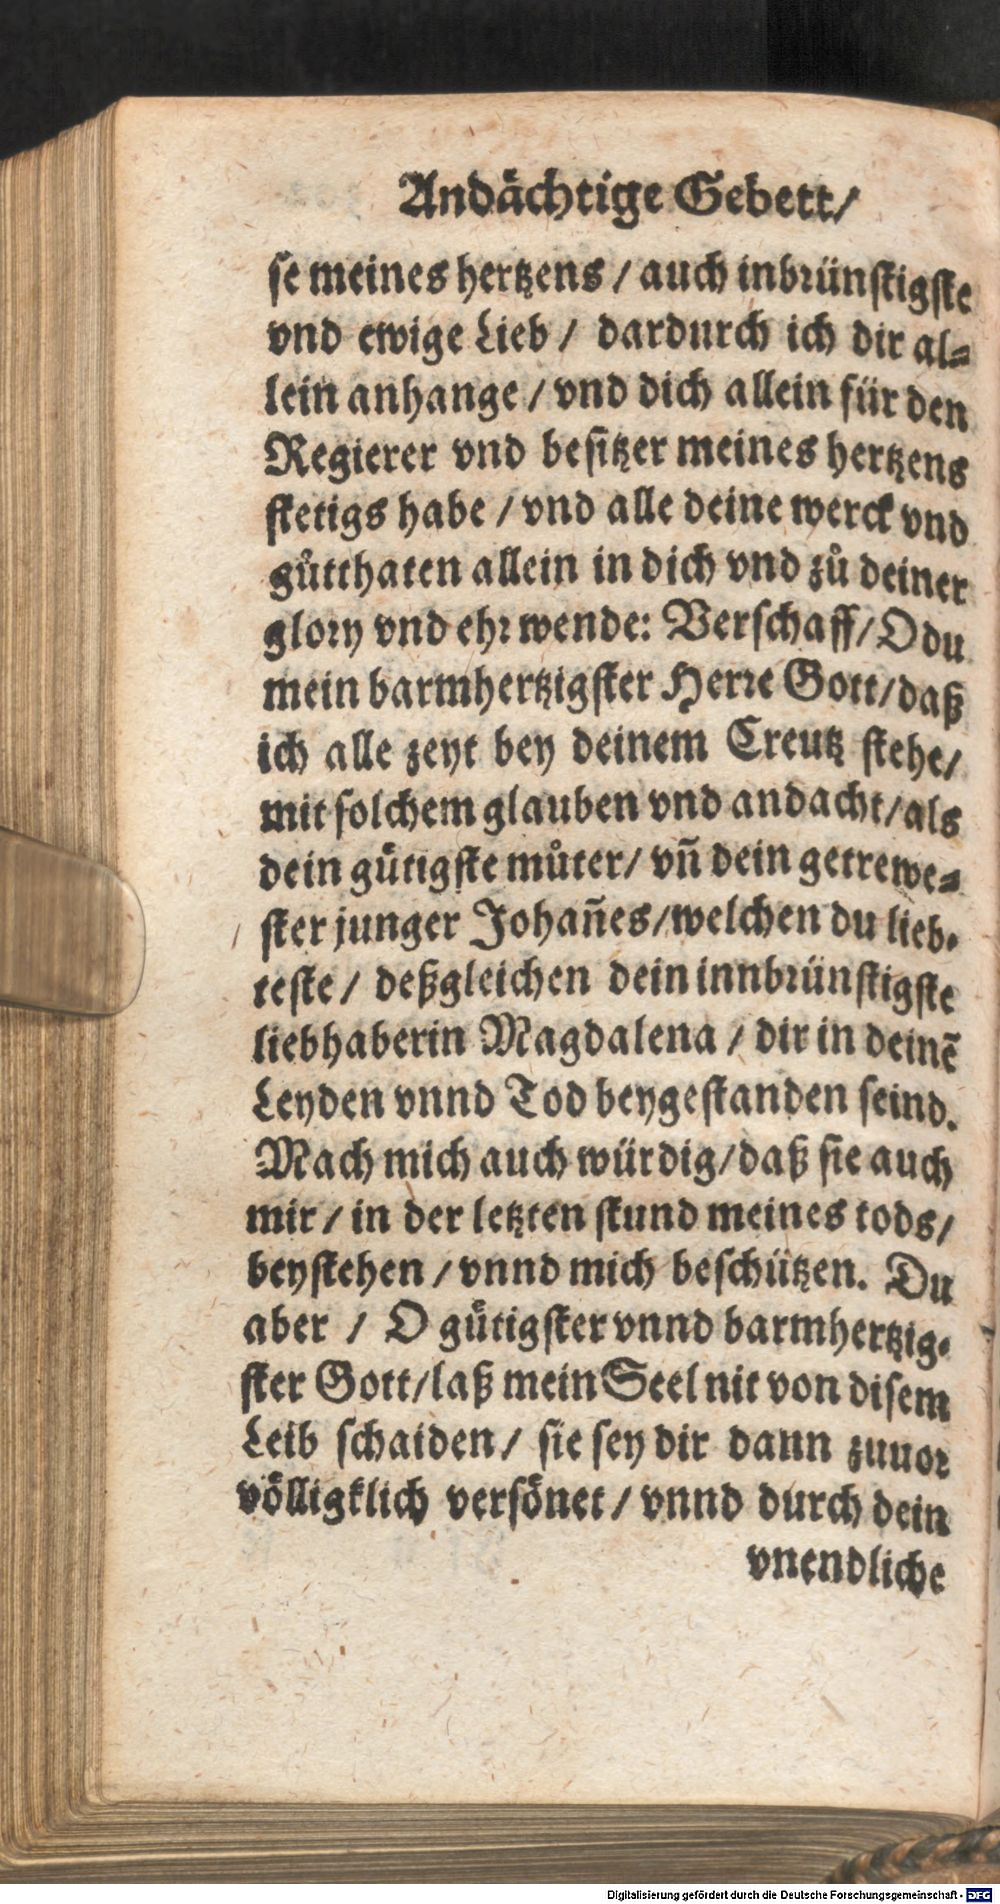 Andächtige Gebett/
se meines hertzens / auch inbrünstigste
vnd ewige Lieb / dardurch ich dir al⸗
lein anhange / vnd dich allein für den
Regierer vnd besitzer meines hertzens
stetigs habe / vnd alle deine werck vnd
gůtthaten allein in dich vnd zů deiner
glory vnd ehr wende: Verschaff/ O du
mein barmhertzigster Herre Gott/daß
ich alle zeyt bey deinem Creutz stehe/
mit solchem glauben vnd andacht/als
dein gütigste můter/ vñ dein getrewe⸗
ster junger Johañes/welchen du lieb⸗
teste / deßgleichen dein innbrünstigste
liebhaberin Magdalena / dir in deinẽ
Leyden vnnd Tod beygestanden seind.
Mach mich auch würdig/daß sie auch
mir / in der letzten stund meines tods/
beystehen / vnnd mich beschützen. Du
aber / O gütigster vnnd barmhertzig⸗
ster Gott/laß mein Seel nit von disem
Leib schaiden / sie sey dir dann zuuor
völligklich versönet / vnnd durch dein
vnendliche
Digitalisierung gefördert durch die Deutsche Forschungsgemeinschaft - DFG